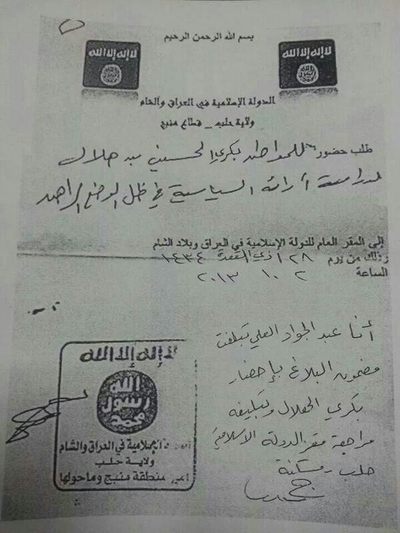 بسم الله الرحمن الرحيم
لا إله إلا الله
الله
رسول
محمد
لا إله إلا الله
الله
رسول
محمد
الدولة الإسلامية في العراق والشام
ولاية حلب _ قطاع منبج
طلب حضور للمواطن بكري الحسيني
أرائه السياسية في ظل الوضع الراهن
إلى المقر العام للدولة الإسلامية في العراق وبلاد الشام
وذلك من يوم ٢٨ ذي القعدة ١٤٣٤
الساعة ٢ ١٠ ٢٠١٣
أنا عبد الجواد العلي تبلغت
مضمون البلاغ بإحضار
بكري الهلال وتبليغه
مراجعة مقر الدولة الاسلامية
حلب - مسكنة
لا إله إلا الله
الله
رسول
محمد
الإسلامية في العراق والشام
ولاية حلب
أمير منطقة منبج وماحولها